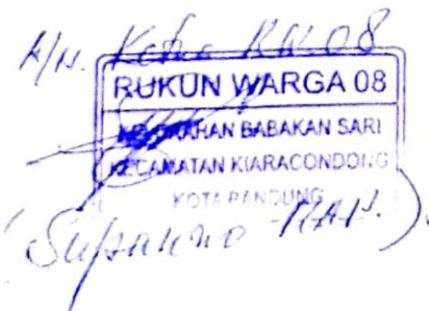 A/n. Ketua RW.08
RUKUN WARGA 08
KELURAHAN BABAKAN SARI
KECAMATAN KIARACONDONG
KOTA BANDUNG
(Suparno